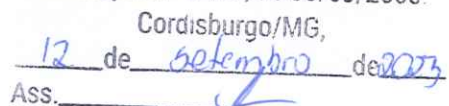 Cordisburgo/MG,
12 de setembro de 2023
Ass.